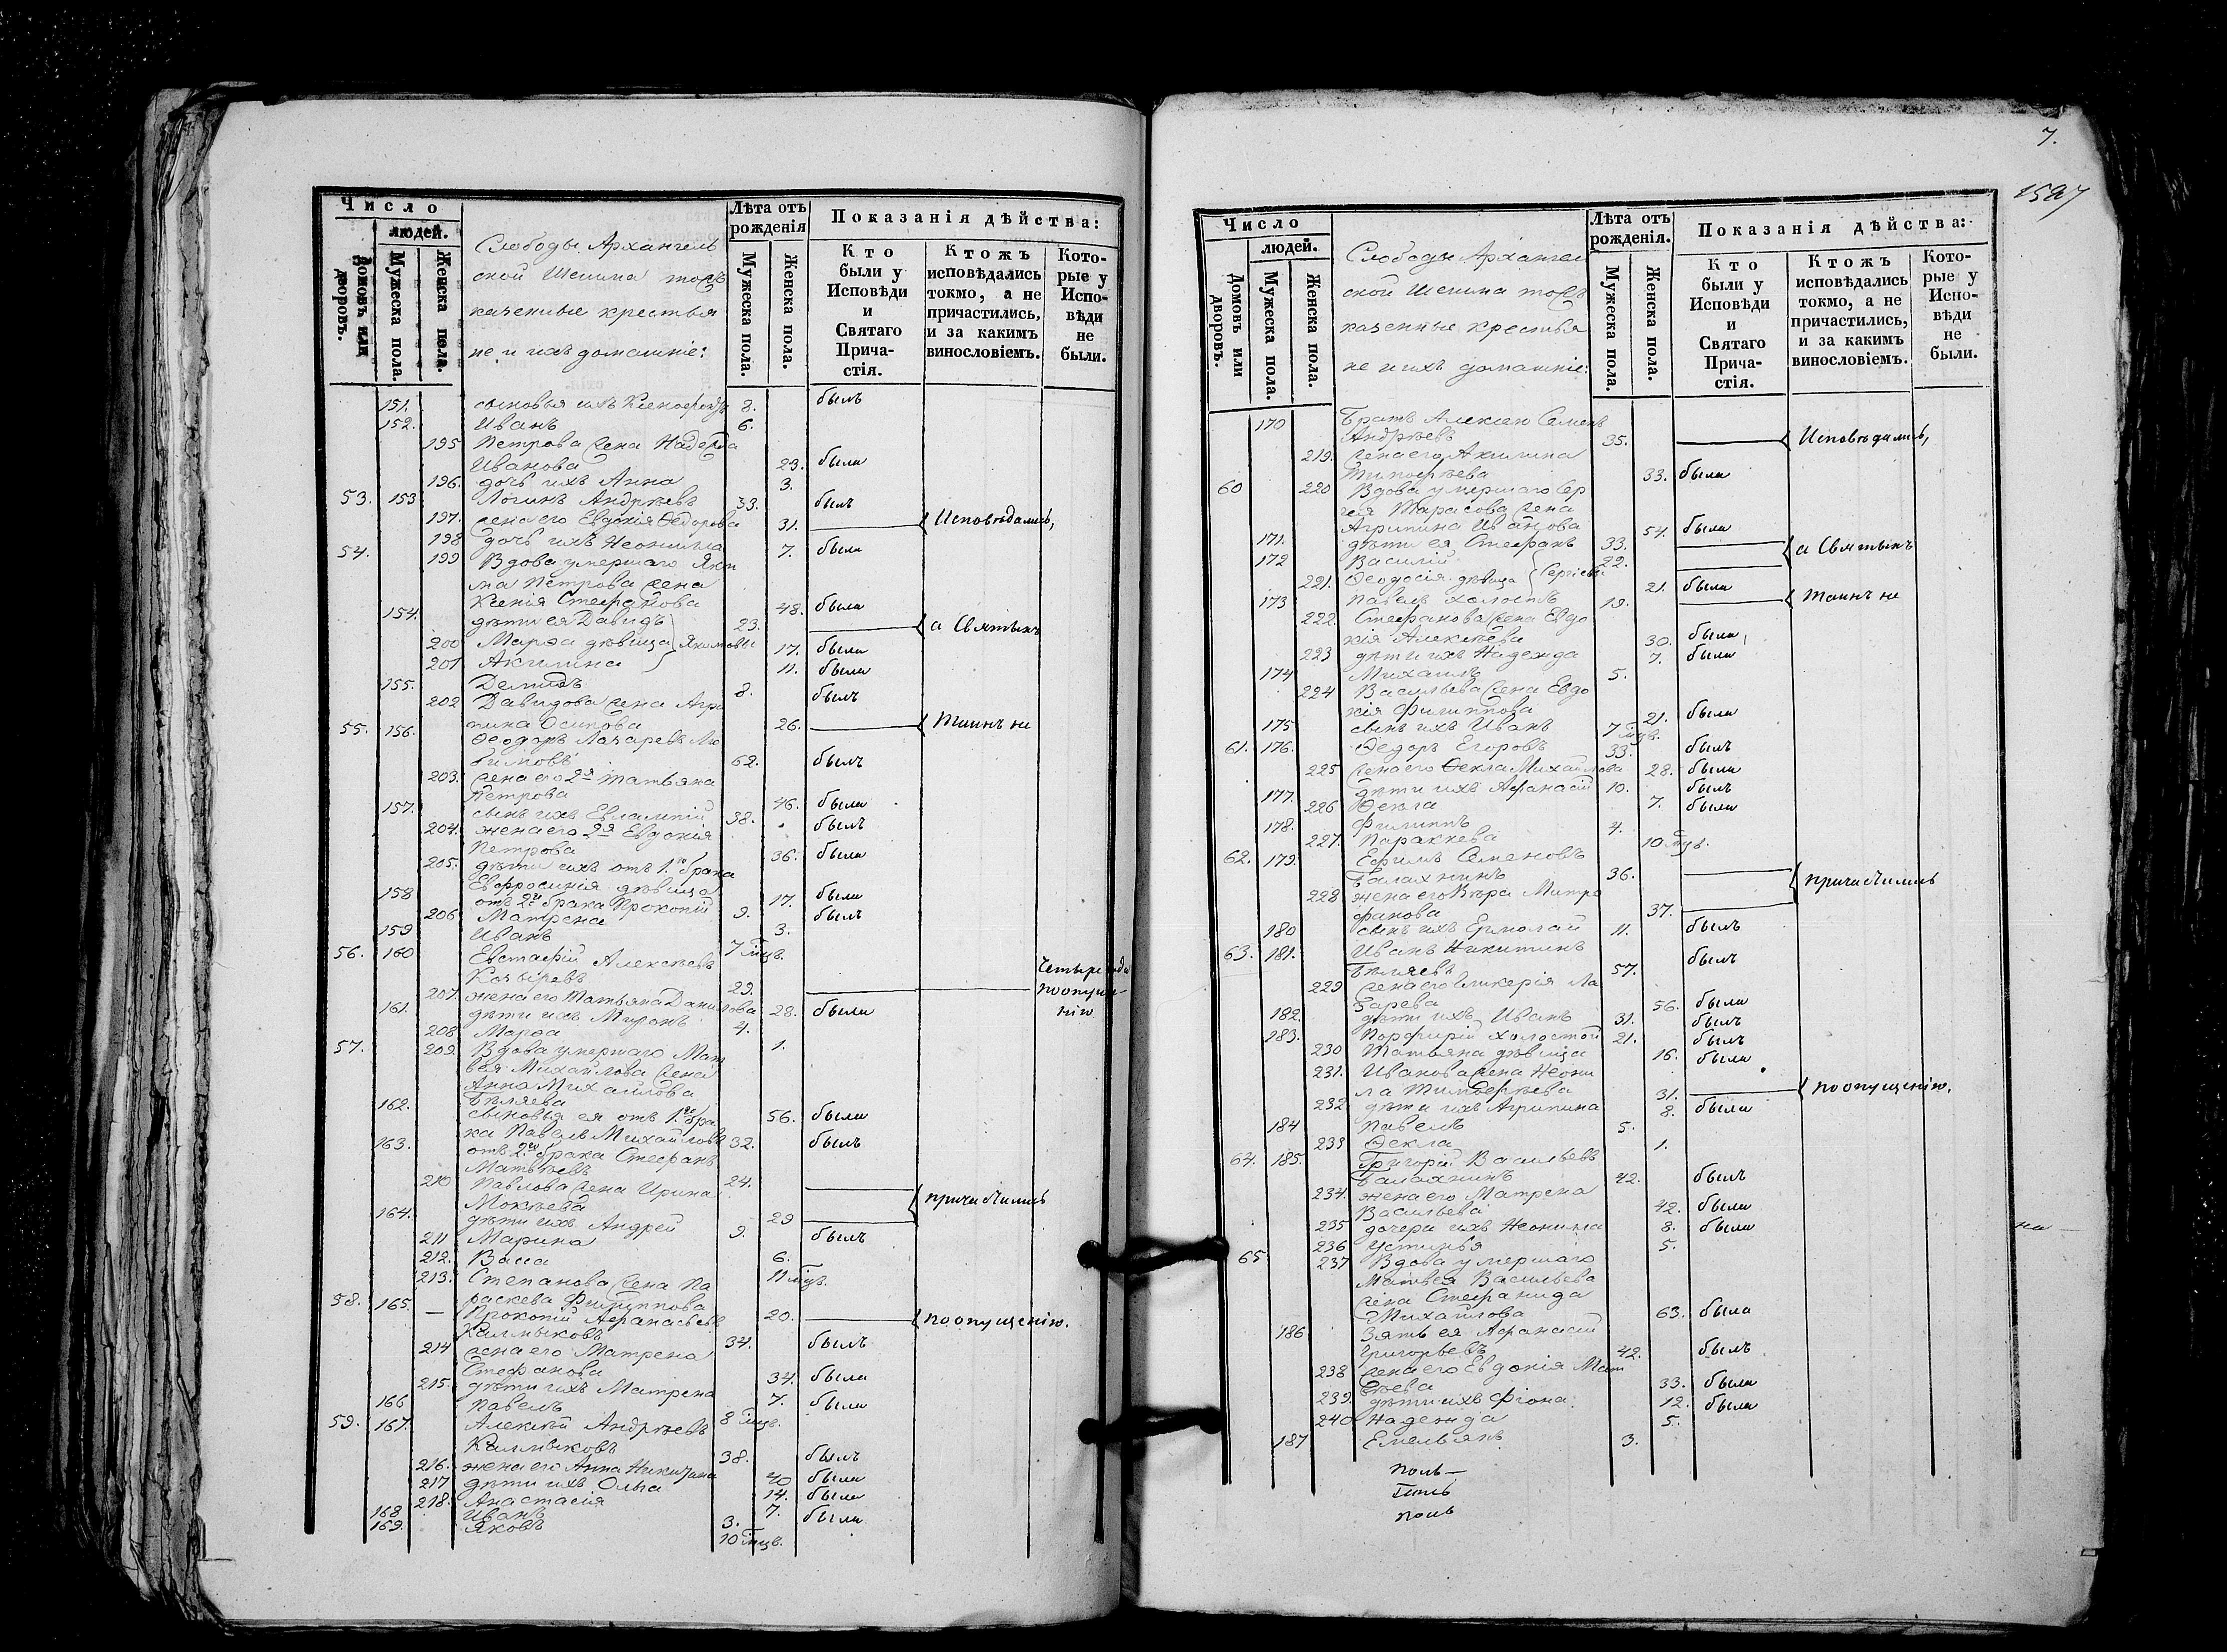 Число
людей.
Домовъ или дворовъ.
Мужеска пола.
Женска пола.
Слободы Архангель
ской Шелина тожъ
казенные крестья
не и ихъ домашніе:
Лѣта отъ рожденія
Мужеска пола.
Женска пола.
Показанія дѣйства:
Кто были у Исповѣди и Святаго Прича-стія.
Ктожъ исповѣдались токмо, а не причастились, и за какимъ винословіемъ.
Кото-рые у Испо-вѣди не были.
151. сыновья ихъ 8. былъ
152. Иванъ 6.
195 Петрова жена Надежда
Иванова 29. была
196. дочь ихъ Анна 3.
53. 153 Логинъ Андреевъ 33. былъ
197. жена его Евдокія Ѳедорова 31. Исповѣдались,
198 дочь ихъ Неонила 7. была
54. 199 Вдова умершаго Яки
ма Петрова жена
Ксенія Стефанова 48. была
154. дѣти ея Давидъ 23. а Святыхъ
200 Марѳа дѣвица Якимовы 17. была
201 Акилина 11. была
155. Демидъ 8. былъ
202 Давидова жена Агри
пина Осипова 26. Таинъ не
55. 156. Ѳеодоръ Лазаревъ Лю
бимовъ 62. былъ
203. жена его 2я Татьяна
Петрова 46. была
157. сынъ ихъ Евлампій 38. былъ
204. жена его 2я Евдокія
Петрова 36. была
205. дѣти ихъ отъ 1го брака
Евфросинія дѣвица 17. была
158 отъ 2го брака Прокопій 9. былъ
206 Матрена 3.
159 Иванъ 7 мцъ.
56. 160 Евстафій Алексѣевъ
Козыревъ 29. Четыре года по опущенію
207. жена его Татьяна Данилова 28. была
161. дѣти ихъ Миронъ 4.
208 Марѳа 1.
57. 209. Вдова умершаго Мат
вея Михайлова жена
Анна Михайлова
Бѣляева 56. была
162. сыновья ея отъ 1го бра
ка Павелъ Михайловъ 32. былъ
163. отъ 2го брака Стефанъ
Матвѣевъ 24.
210 Павлова жена Ирина
Мокѣева 29 причастились
164. дѣти ихъ Андрей 9. былъ
211 Марина 6.
212. Васса 11 мцъ.
213. Степанова жена Па
раскева Филиппова 20. по опущенію.
58. 165. Прокопій Афанасьевъ
Калмыковъ 34. былъ
214 жена его Матрена
Стефанова 34. была
215. дѣти ихъ Матрена 7. была
166 Павелъ 8 мцъ.
59. 167. Алексѣй Андрѣевъ
Калмыковъ 38. былъ
216. жена его Анна Никитина 40 была
217 дѣти ихъ Ольга 14. была
218. Анастасія 7. была
168 Иванъ 3.
169. Яковъ 10 мцъ.
7.
1527
Число
людей.
Домовъ или дворовъ.
Мужеска пола.
Женска пола.
Слободы Архангель
ской Шелина тожъ
казенные крестья
не и ихъ домашніе:
Лѣта отъ рожденія.
Мужеска пола.
Женска пола.
Показанія дѣйства:
Кто были у Исповѣди и Святаго Прича-стія.
Ктожъ исповѣдались токмо, а не причастились, и за какимъ винословіемъ.
Кото-рые у Испо-вѣди не были.
170 Братъ Алексѣю Семенъ
Андрѣевъ 35. Исповѣдались,
219. жена его Акилина
Тимофѣева 33. была
60 220 Вдова умершаго Сер
гея Тарасова жена
Агрипина Иванова 54. была
171. дѣти ея Стефанъ 33. а Святыхъ
172 Василій 22.
221. Ѳеодосія дѣвица Сергѣевы 21. была
173 Павелъ холостъ 19. Таинъ не
222. Стефанова жена Евдо
кія Алексѣева 30. была,
223 дѣти ихъ Надежда 7. была
174 Михаилъ 5.
224 Васильева жена Евдо
кія Филиппова 21. была
175 сынъ ихъ Иванъ 7 мцъ.
61. 176. Ѳедоръ Егоровъ 33. былъ
225 жена его Ѳекла Михайлова 28. была
177. дѣти ихъ Афанасій 10. былъ
226 Ѳекла 7. была
178. Филиппъ 4.
227. Параскева 10 мцъ.
62. 179. Ефимъ Семеновъ
Балахнинъ 36.
228 жена его Вѣра Митро
фанова 37. причастились
180 сынъ ихъ Ермолай 11. былъ
63. 181. Иванъ Никитинъ
Бѣляевъ 57. былъ
229 жена его Гликерія Ла
зарева 56. была
182. дѣти ихъ Иванъ 31. былъ
183. Порфирій холостой 21. былъ
230 Татьяна дѣвица 16. была
231. Иванова жена Неони
ла Тимофѣева 31. по опущенію.
232 дѣти ихъ Агрипина 8. была
184 Павелъ 5.
233 Ѳекла 1.
64. 185. Григорій Васильевъ
Балахнинъ 42. былъ
234. жена его Матрена
Васильева 42. была
235 дочери ихъ Неонила 8. была
236 Устинья 5.
65 237 Вдова умершаго
Матвея Васильева
жена Стефанида
Михайлова 63. была
186 Зять ея Афанасій
Григорьевъ 42. былъ
238 жена его Евдокія Мат
вѣева 33. была
239. дѣти ихъ Фіона 12. была
240 Надежда 5.
187 Емельянъ 3.